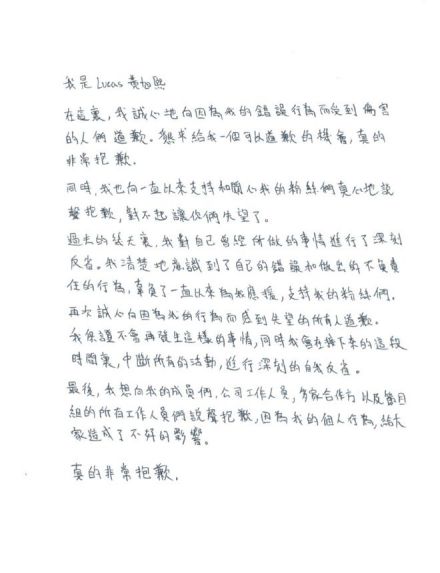 我是 Lucas 黃旭熙
在這裏,我誠心地向因為我的錯誤行為而受到傷害
的人們道歉。懇求給我一個可以道歉的機會,真的
非常抱歉.
同時,我也向一直以來支持和關心我的粉絲們真心地說
聲抱歉,對不起讓你們失望了。
過去的幾天裏,我對自己曾經所做的事情進行了深刻
反省。我清楚地意識到了自己的錯誤和做出的不負責
任的行為,辜負了一直以來為我應援,支持我的粉絲們.
再次誠心向因為我的行為而感到失望的所有人道歉.
我保證不會再發生這樣的事情,同時我會在接下來的這段
時間裏,中斷所有的活動,進行深刻的自我反省。
最後,我想向我的成員們,公司工作人員,多家合作方以及節目
組的所有工作人員們說聲抱歉,因為我的個人行為,給大
家造成了不好的影響。
真的非常抱歉.